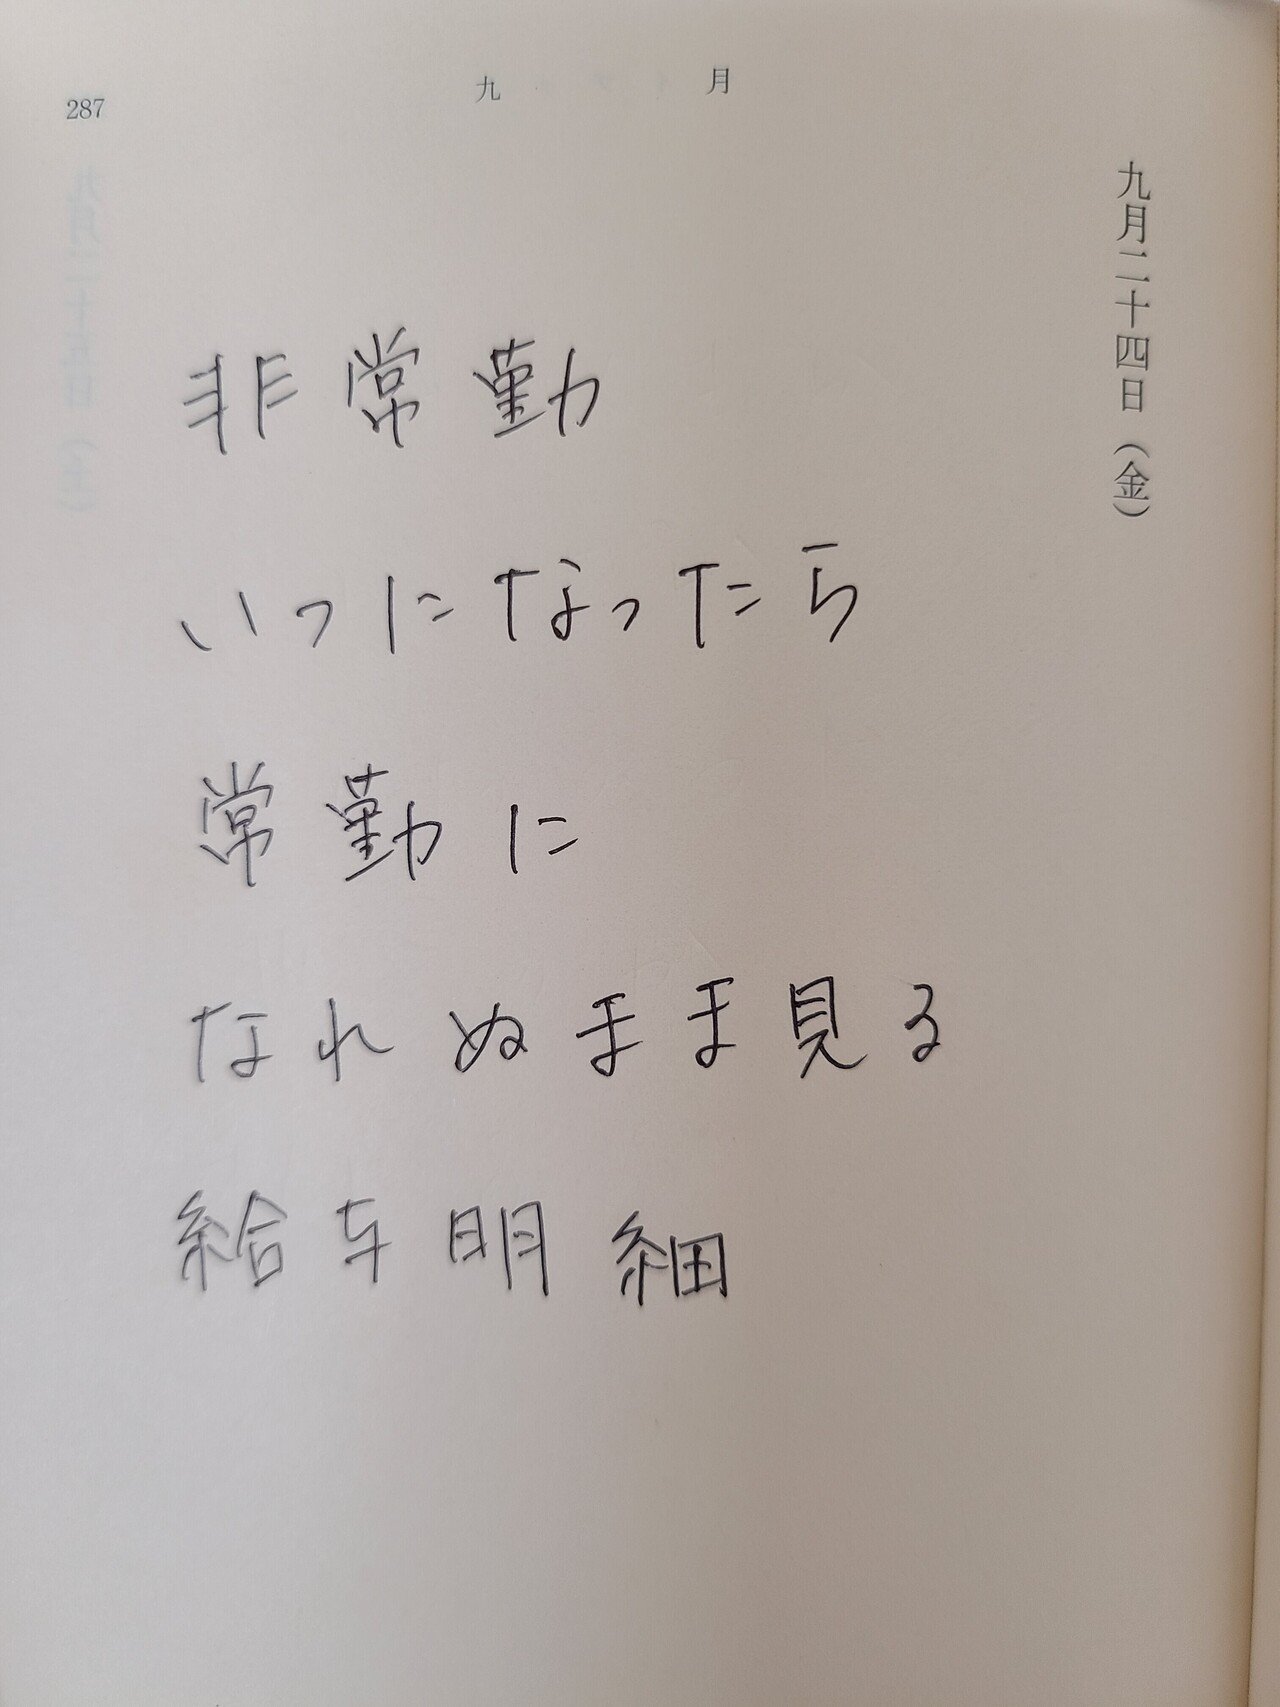 287
九月
九月二十四日(金)
非常勤
いつになったら
常勤に
なれぬまま見る
給与明細